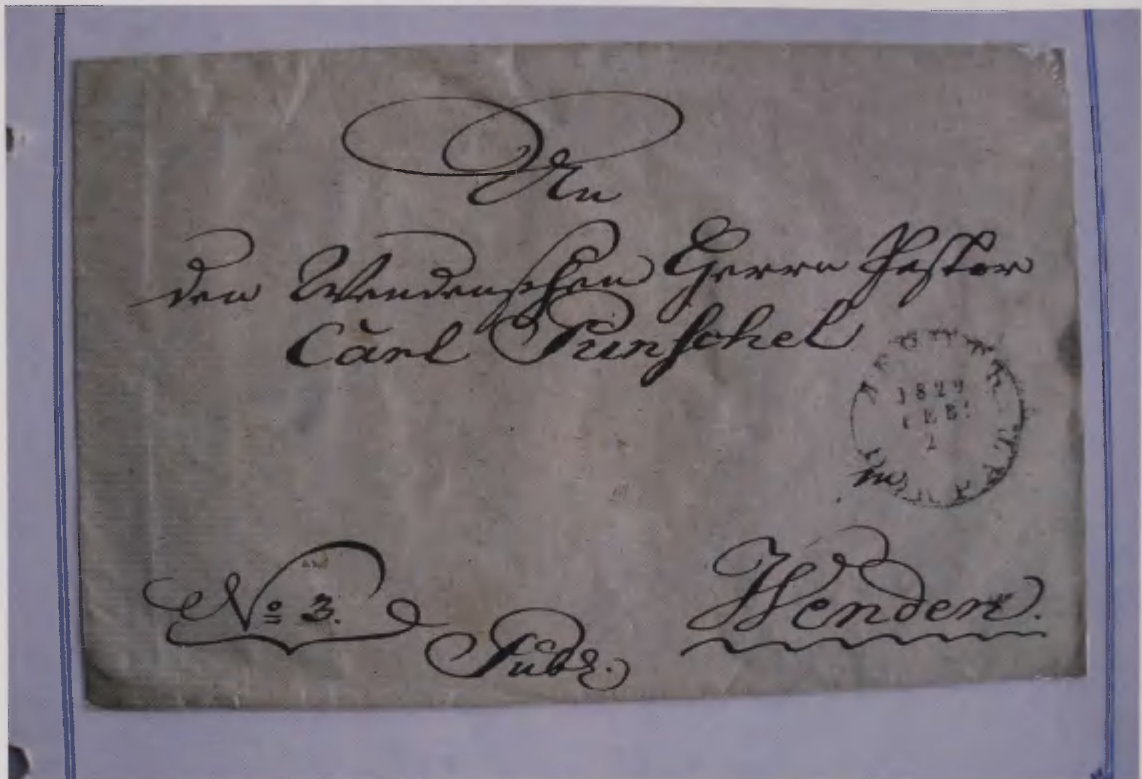 An
den Wendenschen Herrn Pastor
Carl Punschel
1829
FEB:
2
in
No 3.
Publ.
Wenden.